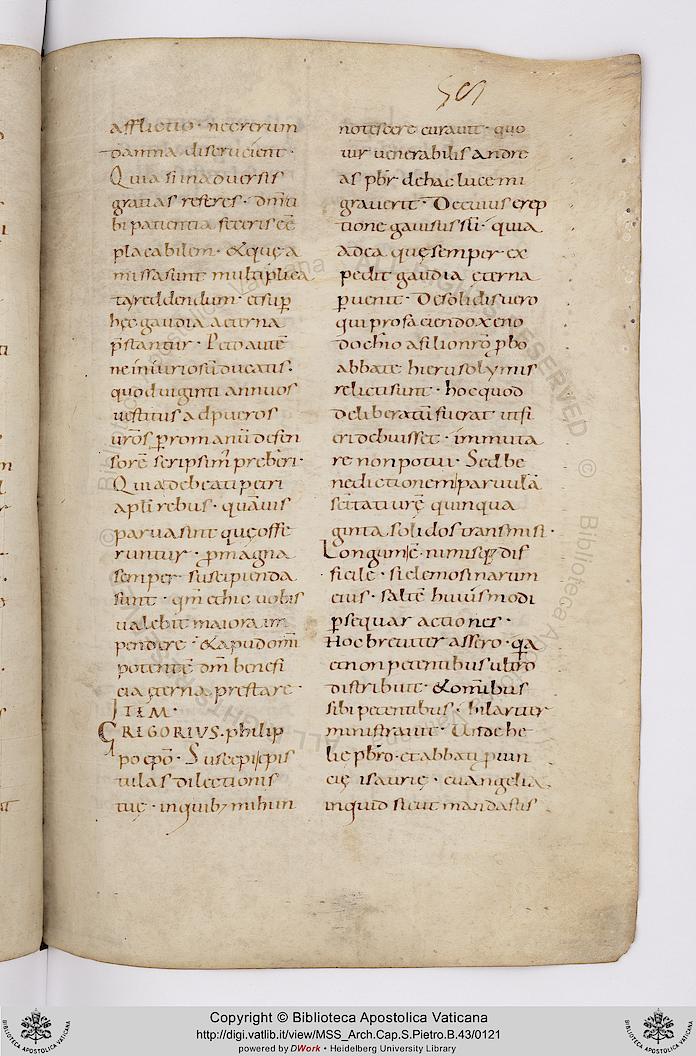 afflictio · nec rerum
damna discrucient ·
Quia si in adversis
gratias referes · dm̅ ti
bi patientia feceris eē
placabilem · & quę a
missa sunt multiplica
ta reddendum et sup̄
hęc gaudia aeterna
p̄stantur · Peto autē
ne iniuriosū ducatis ·
quod viginti annuos
vestitus ad pueros
vr̄os p̱ romanū defen
sorē scripsim̄ preberi ·
Quia de beati petri
apl̄i rebus · quāvis
parva sint quę offe
runtur · p̱ magna
semper suscipienda
sunt · qm̄ et hic vobis
valebit maiora im
pendere · & apud om̄i
potentē dm̄ benefi
cia ęterna prestare ·
ITEM ·
GREGORIUS · philip
po epō · Suscepi epis
tulas dilectionis
tuę · in quib; mihi in
notescere curavit · quo
vir venerabilis andre
as pbr̄ de hac luce mi
graverit · De cuius erep
tione gavisus sū · quia
ad ea quę semper ex
pedit gaudia eterna
p̱venit · De solidis vero
qui pro faciendo xeno
dochio a filio nr̄o p̱bo
abbate hierusolymis
relicti sunt · hoc quod
deliberatū fuerat ut fi
eri debuisset · inmuta
re non potui · Sed be
nedictionem parvulā
scītati vr̄ę quinqua
ginta solidos transmisi ·
Longum ē · nimisq; dif
ficile · si elemosinarum
eius · saltē huiusmodi
p̱sequar actiones ·
Hoc breviter assero · qa
et non petentibus ultro
distribuit · & om̄ibus
sibi petentibus · hilariter
ministravit · Unde he
lię pbr̄o · et abbati p̱vin
cię isaurię · evangelia
inquid sicut mandastis
Copyright © Biblioteca Apostolica Vaticana
http://digi.vatlib.it/view/MSS_Arch.Cap.S.Pietro.B.43/0121
powered by DWork • Heidelberg University Library